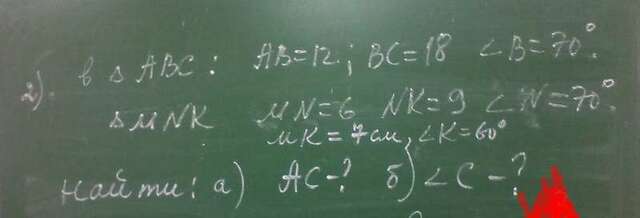 2). в △ ABC: AB=12; BC=18 ∠B=70°.
△ MNK MN=6 NK=9 ∠N=70°.
MK = 7см, ∠K=60°
Найти: а) AC-? б) ∠C-?